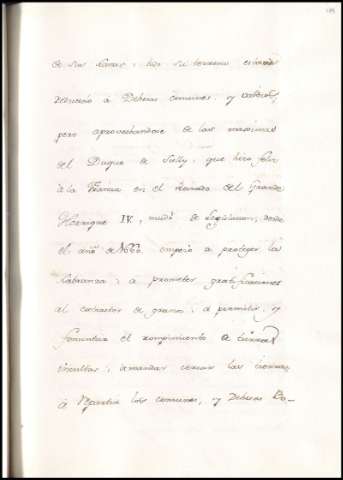 de sus
su terreno
a Dehesas comunes, y valdíos,
pero aprovechandose de las maximas
del Duque de Sully, que hizo feliz
a la Francia en el reinado del Grande
Henrique IV, mudó de Legislacion, desde
el año de empezó a proteger la
labranza; a prometer gratificaciones
al extractor de granos; a permitir, y
fomentar el rompimiento de tierras
incultas; a mandar cerrar las tierras,
á repartir los comunes, y Dehesas